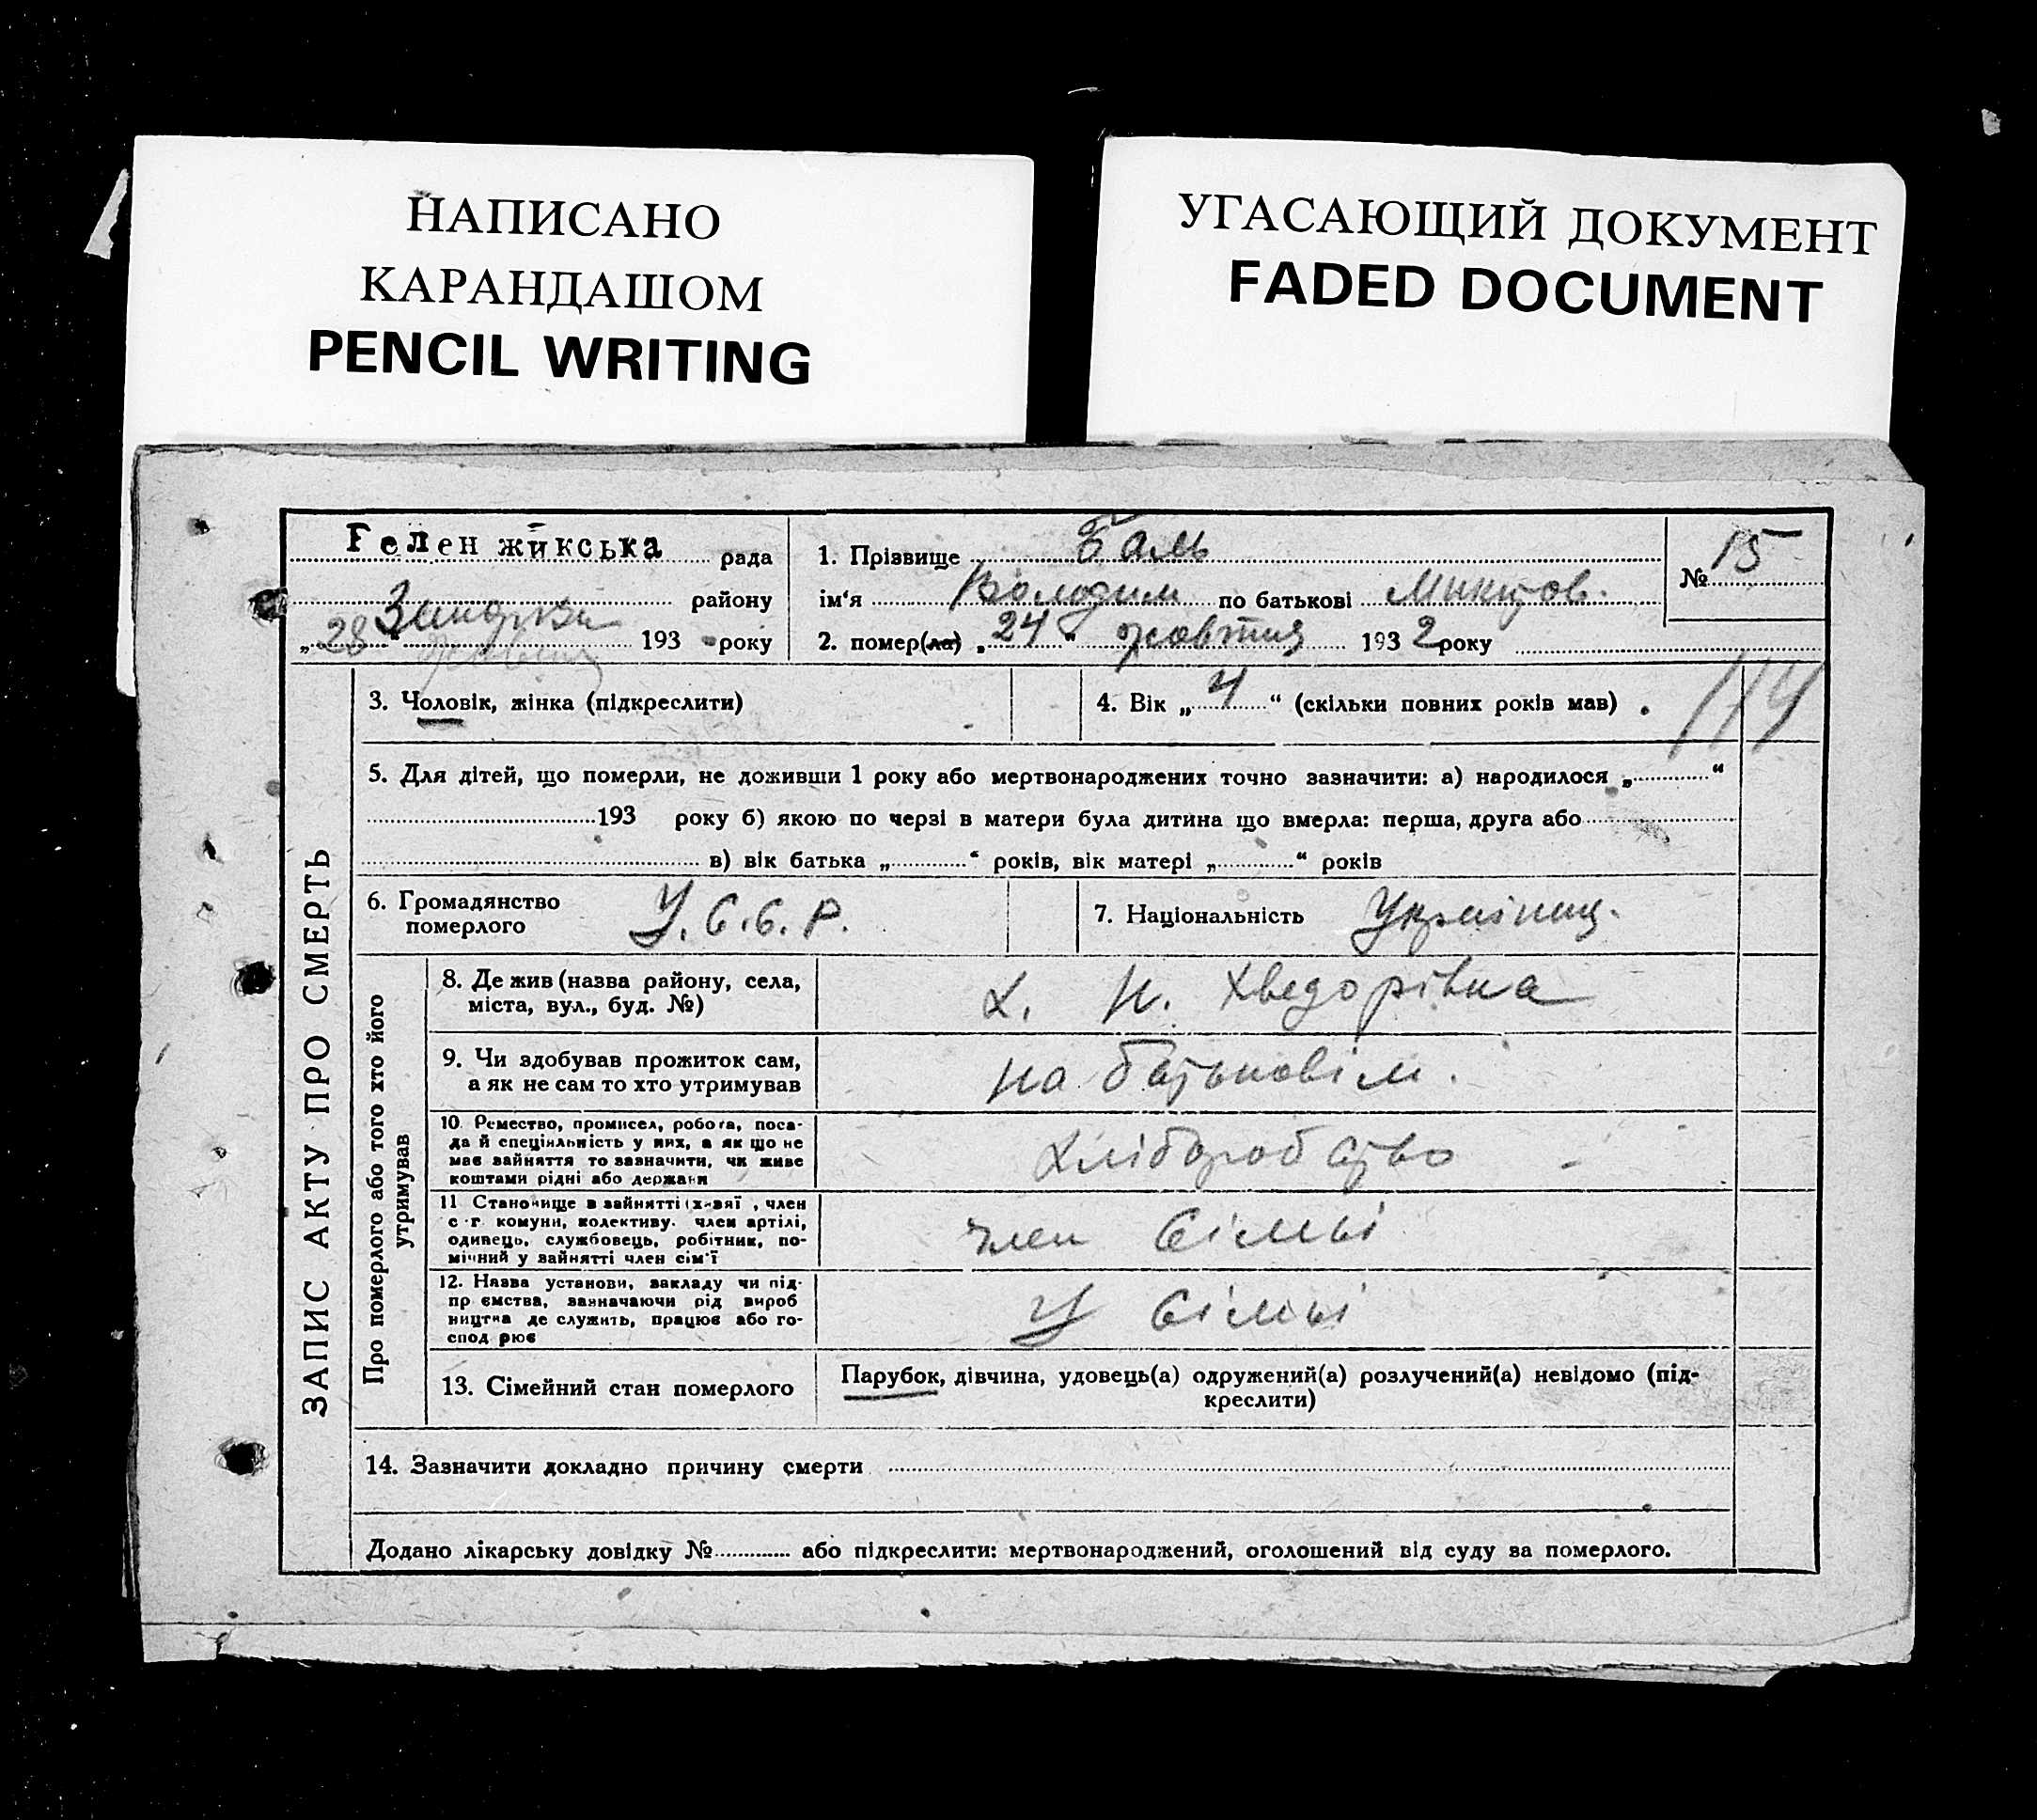 НАПИСАНО
КАРАНДАШОМ
PENCIL WRITING
УГАСАЮЩИЙ ДОКУМЕНТ
FADED DOCUMENT
Гелен жикська рада
району
„ 28 193 року
1. Прізвище Баль
ім‘я Володим по батькові
2. помер(ла) „ 24 “ жовтня 193 2 року
№ 15
3. Чоловік, жінка (підкреслити)
4. Вік „ 4 “ (скільки повних років мав)
174
5. Для дітей, що померли, не доживши 1 року або мертвонароджених точно зазначити: а) народилося „ “
193 року б) якою по черзі в матери була дитина що вмерла: перша, друга або
в) вік батька „ “ років, вік матері „ “ років
6. Громадянство
померлого
У.С.С.Р.
7. Національність Українец.
ЗАПИС АКТУ ПРО СМЕРТЬ
Про померлого або того хто його
утримував
8. Де жив (назва району, села,
міста, вул., буд. №)
х. Н. Хведорівка
9. Чи здобував прожиток сам,
а як не сам то хто утримував
на батьковім.
10. Ремество, промисел, робота, поса-
да й спеціяльність у них, а як що не
має зайняття то зазначити, чи живе
коштами рідні або держави
хліборобство
11 Становище в зайнятті , член
с-г комуни, колективу. член артілі,
одинець, службовець, робітник, по-
мічний у зайнятті член сім'ї
член сімьі
12. Назва установи, закладу чи під-
пр ємства, зазначаючи рід вироб
ництва де служить, працює або го-
спод рює
У сімьі
13. Сімейний стан померлого
Парубок, дівчина, удовець(а) одружений(а) розлучений(а) невідомо (під-
креслити)
14. Зазначити докладно причину смерти
Додано лікарську довідку № або підкреслити: мертвонароджений, оголошений від суду за померлого.